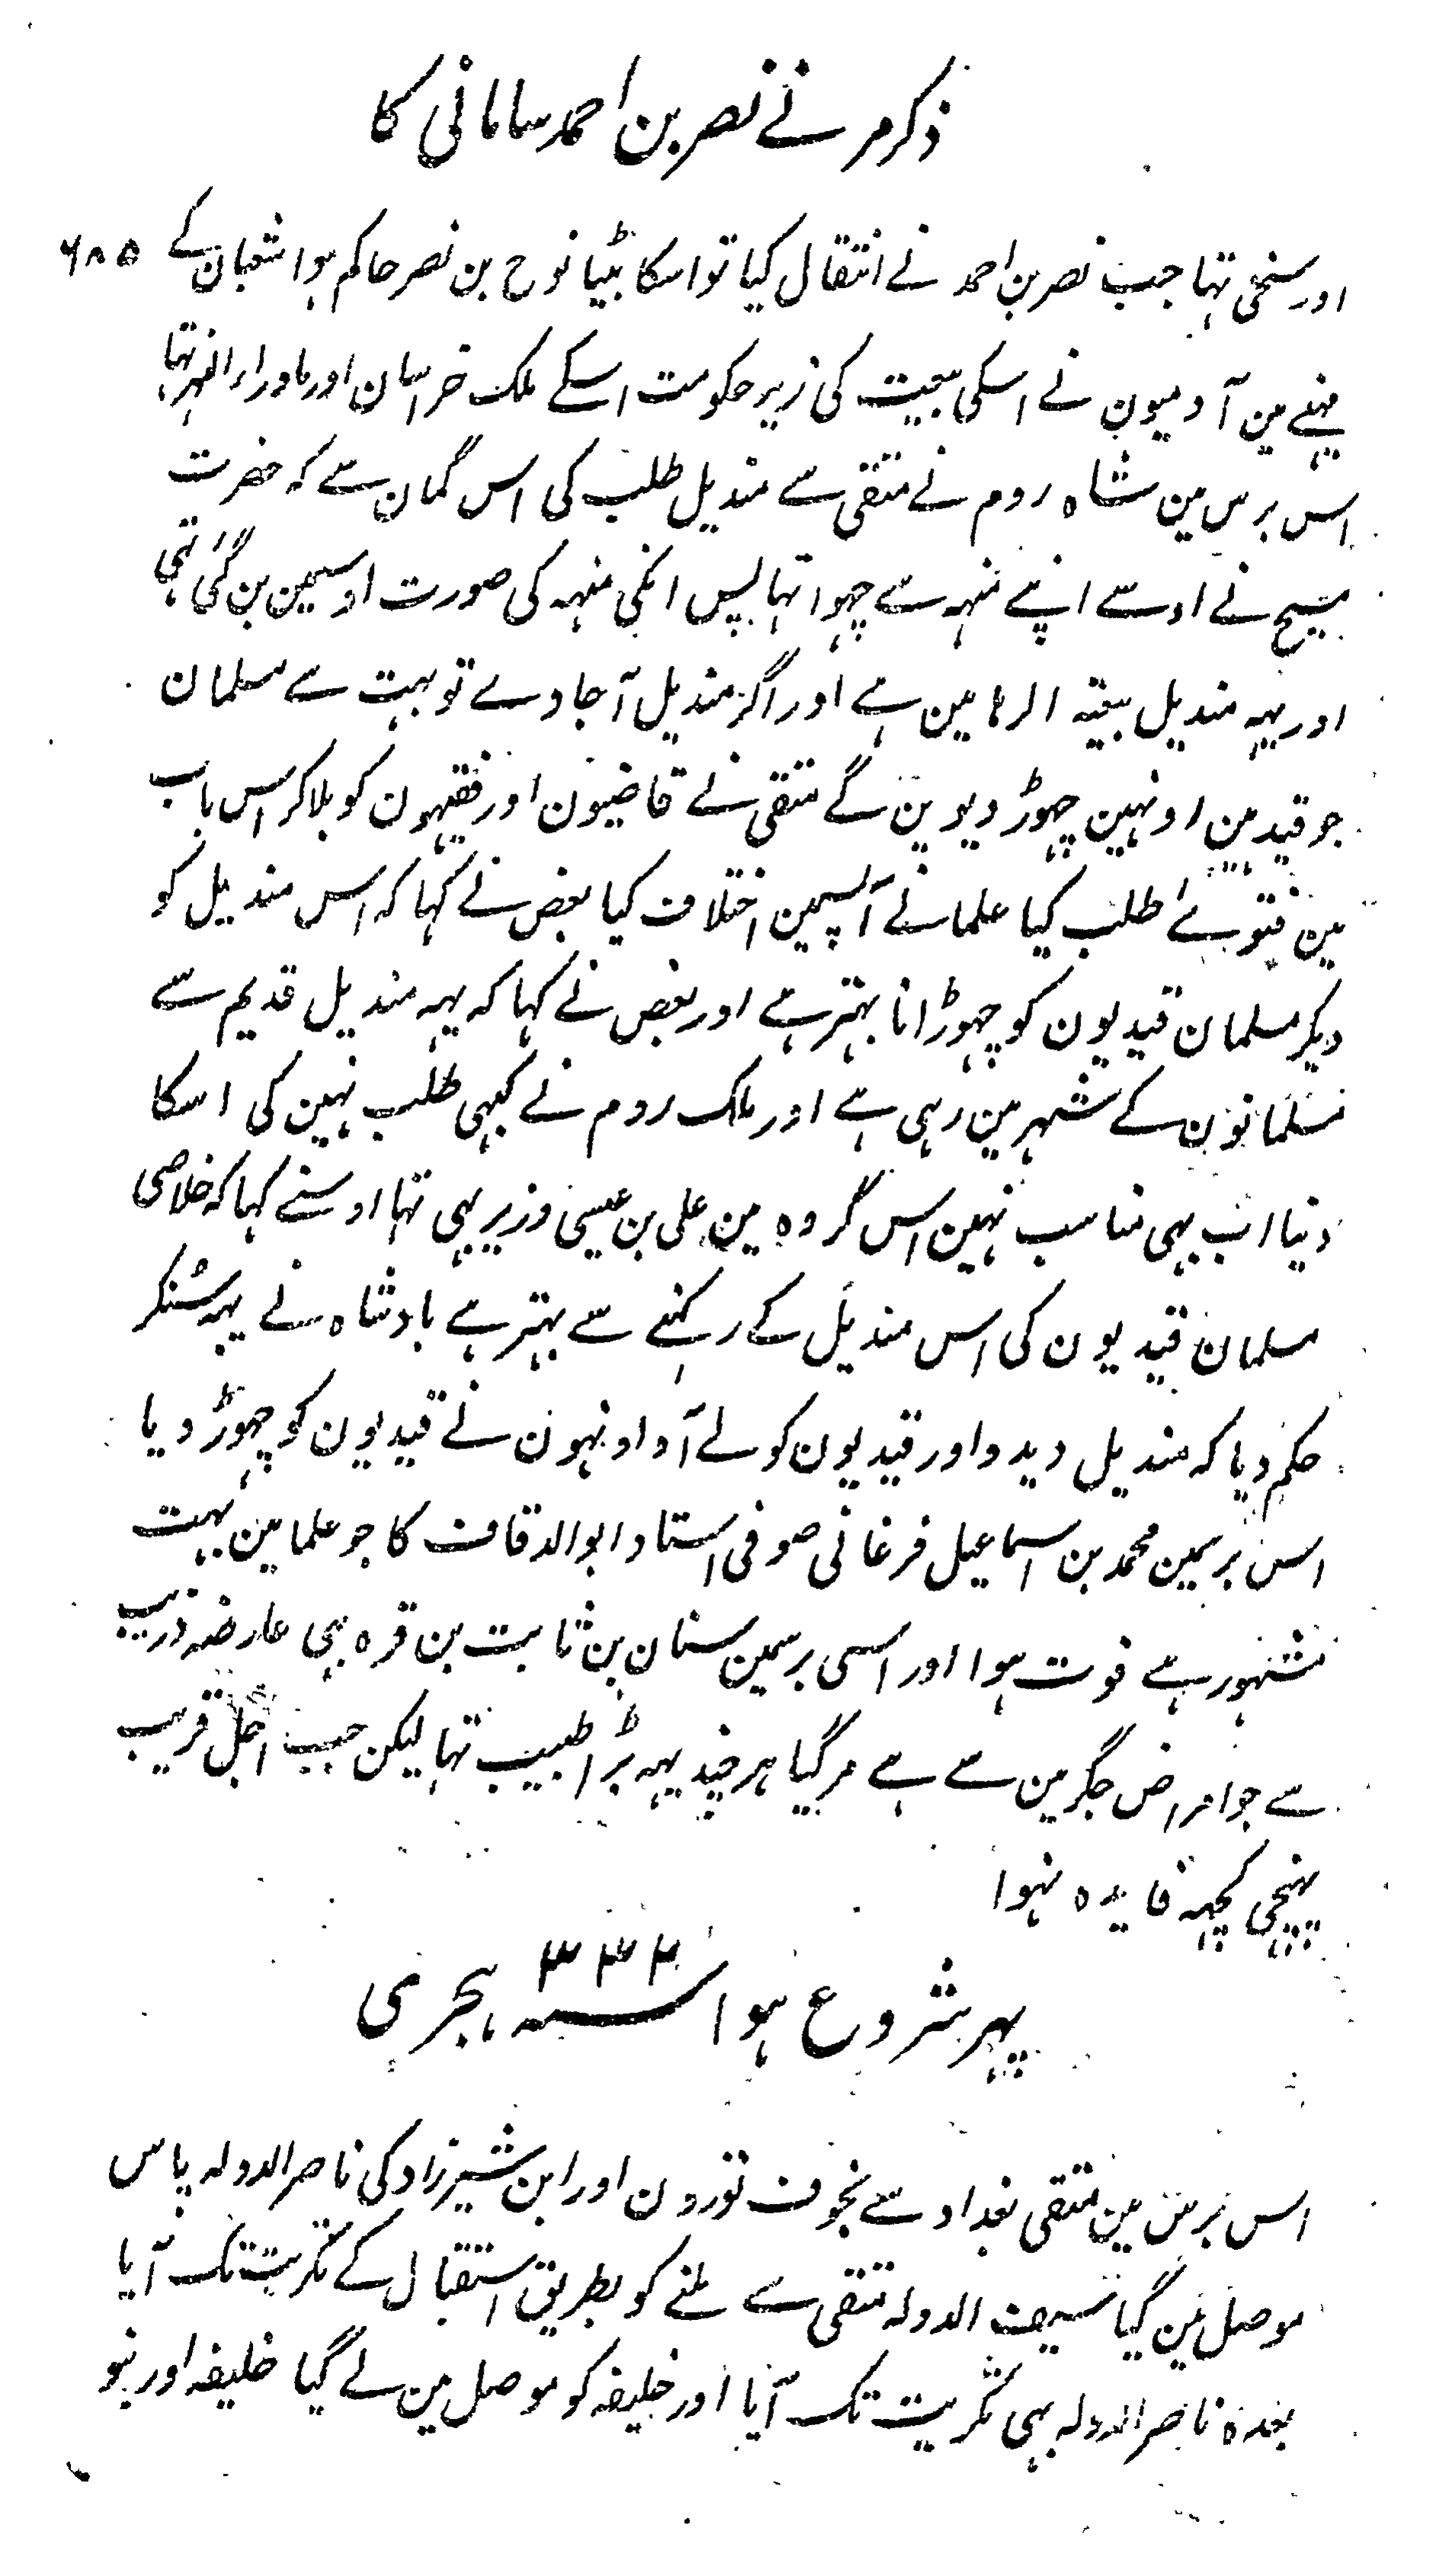 ذکر مرنے نصر بن احمد سامانی کا
۶۸۵
اور سخی تہا جب نصر بن احمد نے انتقال کیا تو اسکا بیٹا نوح بن نصر حاکم ہوا شعبان کے
مہینے مین آدمیون نے اسکی بیعت کی زیر حکومت اسکے ملک خراسان اور ماوراء النہر تہا
اس برس مین شاہ روم نے متقی سے مندیل طلب کی اس گمان سے کہ حضرت
مسیح نے اوسے اپنے منہہ سے چہوا تہا پس انکی منہہ کی صورت اوسمین بن گئی تہی
اور یہہ مندیل بیعۃ الرہا مین ہے اور اگر مندیل آجاوے تو بہت سے مسلمان
جو قید مین اونہین چہوڑ دیوین گے متقی نے قاضیون اور فقیہون کو بلا کر اس باب
مین فتوے طلب کیا علما نے آپسمین اختلاف کیا بعض نے کہا کہ اس مندیل کو
دیکر مسلمان قیدیون کو چہوڑانا بہتر ہے اور بعض نے کہا کہ یہہ مندیل قدیم سے
مسلمانون کے شہر مین رہی ہے اور ملک روم نے کبہی طلب نہین کی اسکا
دنیا اب بہی مناسب نہین اس گروہ مین علی بن عیسی وزیر بہی تہا اوسنے کہا کہ خلاصی
مسلمان قیدیون کی اس مندیل کے رکہنے سے بہتر ہے بادشاہ نے یہہ سُنکر
حکم دیا کہ مندیل دیدو اور قیدیون کو لے آو اونہون نے قیدیون کو چہوڑ دیا
اس برسمین محمد بن اسماعیل فرغانی صوفی استاد ابو الدقاق کا جو علما مین بہت
مشہور ہے فوت ہوا اور اسی برسمین سنان بن ثابت بن قرہ بہی عارضہ ذرب
سے جو امراض جگر مین سے ہے مرگیا ہر چند یہہ بڑا طبیب تہا لیکن جب اجل قریب
پہنچی کچہہ فایدہ نہوا
پہر شروع ہوا سنہ ۳۳۲ ہجری
اس برس مین متقی بغداد سے بخوف توزون اور ابن شیرزاد کی ناصر الدولہ پاس
موصل مین گیا سیف الدولہ متقی سے ملنے کو بطریق استقبال کے تکریت تک آیا
بعدہ ناصر الدولہ بہی تکریت تک آیا اور خلیفہ کو موصل مین لے گیا خلیفہ اور بنو